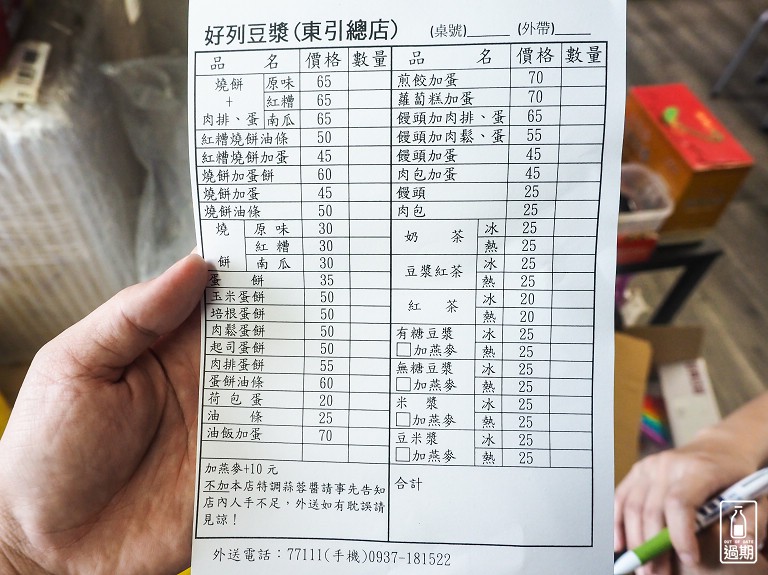 好列豆漿(東引總店) (桌號) (外帶)
品 名 價格 數量
燒餅+肉排、蛋 原味 65
紅糟 65
南瓜 65
紅糟燒餅油條 50
紅糟燒餅加蛋 45
燒餅加蛋餅 60
燒餅加蛋 45
燒餅油條 50
燒餅 原味 30
紅糟 30
南瓜 30
蛋餅 35
玉米蛋餅 50
培根蛋餅 50
肉鬆蛋餅 50
起司蛋餅 50
肉排蛋餅 55
蛋餅油條 60
荷包蛋 20
油條 25
油飯加蛋 70
加燕麥+10元
不加本店特調蒜蓉醬請事先告知
店內人手不足，外送如有耽誤請
見諒！
品 名 價格 數量
煎餃加蛋 70
蘿蔔糕加蛋 70
饅頭加肉排、蛋 65
饅頭加肉鬆、蛋 55
饅頭加蛋 45
肉包加蛋 45
饅頭 25
肉包 25
奶茶 冰 25
熱 25
豆漿紅茶 冰 25
熱 25
紅茶 冰 20
熱 20
有糖豆漿 冰 25
□加燕麥 熱 25
無糖豆漿 冰 25
□加燕麥 熱 25
米漿 冰 25
□加燕麥 熱 25
豆米漿 冰 25
□加燕麥 熱 25
合計
外送電話：77111(手機)0937-181522
OUT OF DATE
過期